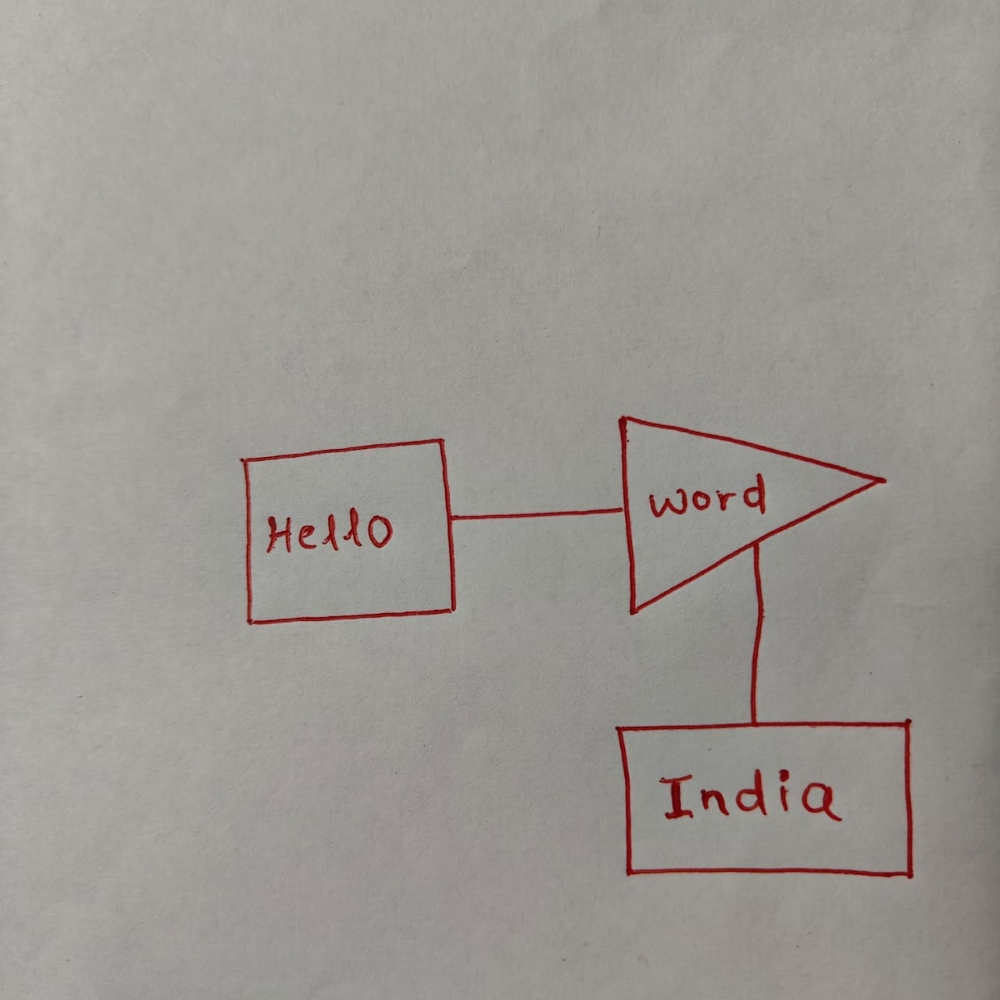 Hello
word
India